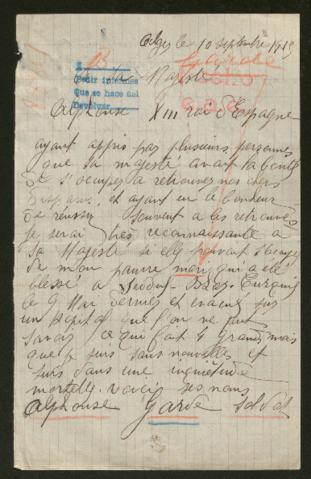 Alger le 10 septembre 1915
Pedir informes
Que se hace del
Devolver
a sa Majesté
Alphonse XIII roi d'Espagne
ayant appris par plusieurs personnes
que sa majesté avait la bonté
de s'occuper a retrouver nos chers
et ayant eu le bonheur
de réussir souvent a les retrouver
je serai très reconnaissante a
Sa Majesté si elle pouvait s'occuper
de mon pauvre mari qui a été
blessé a Seddul-Bahr Turquie
le 9 Mai dernier et évacué sur
un hopital que l'on ne peut
savoir ce qui fait 4 grands mois
que je suis sans nouvelles et
suis dans une inquiétude
mortelle. Voici ses noms
Alphonse Garde soldat